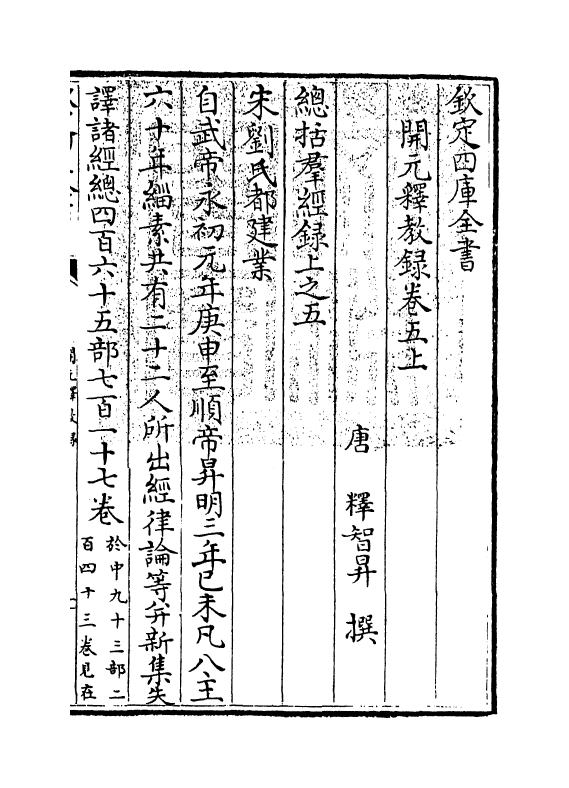 欽定四庫全書
開元釋教録卷五上
唐　釋智昇　撰
總括羣經録上之五
宋劉氏都建業
自武帝永初元年庚申至順帝昇明三年己未凡八主
六十年緇素共有二十二人所出經律論等并新集失
譯諸經總四百六十五部七百一十七卷於中九十三部二
百四十三卷見在